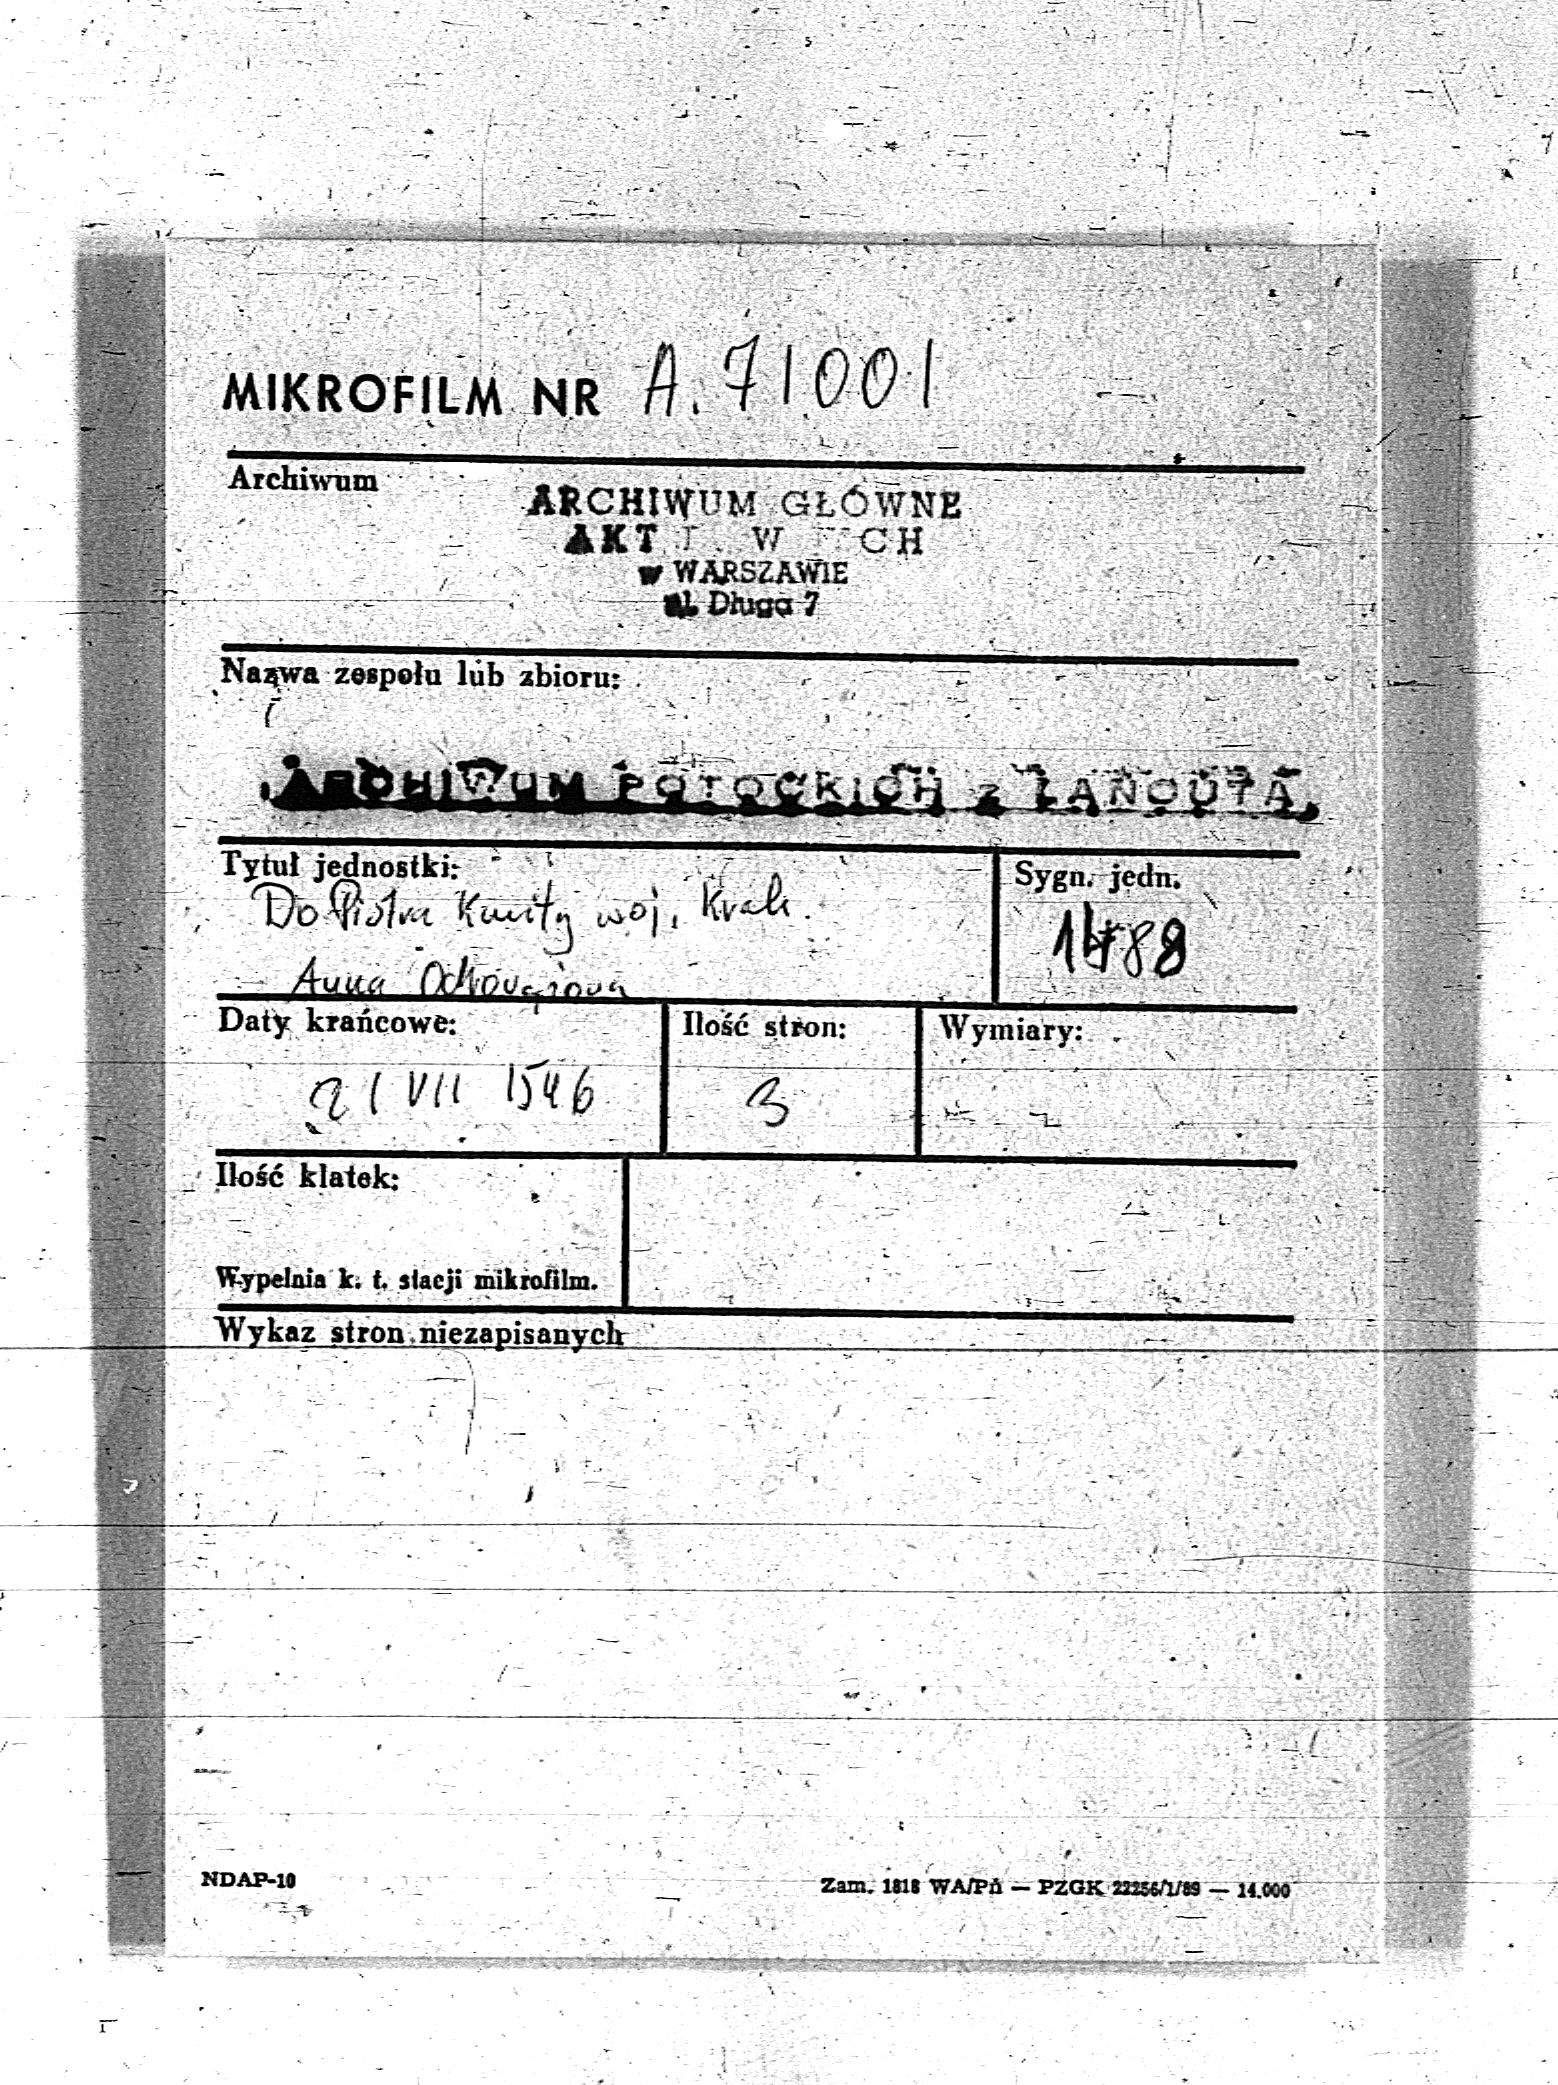 MIKROFILM NR A. 71001
Archiwum
ARCHIWUM GŁÓWNE
AKT
w WARSZAWIE
ul. Długa 7
Nazwa zespołu lub zbioru:
ARCHIWUM POTOCKICH z ŁAŃCUTA
Tytuł jednostki:
Do Piotra Kmity woj. Krak.
Anna
Sygn. jedn.
Daty krańcowe:
21 VII 1546
Ilość stron:
3
Wymiary:
Ilość klatek:
Wypełnia k. t. stacji mikrofilm.
Wykaz stron niezapisanych
NDAP-10
Zam. 1818 WA/Pń — PZGK 22256/1/89 — 14.000